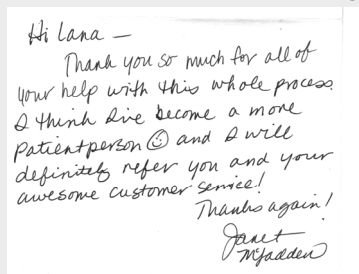 Hi Lana —
Thank you so much for all of
your help with this whole process.
I think I've become a more
patient person ☺ and I will
definitely refer you and your
awesome customer service!
Thanks again!
Janet
McFadden